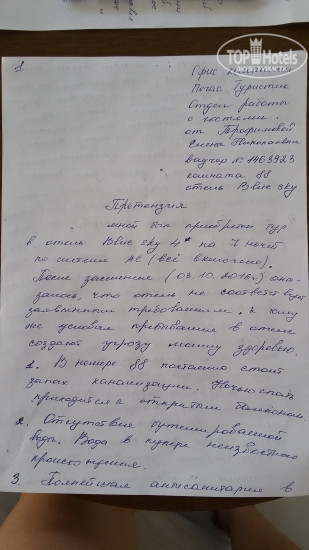 TOP Hotels
1
Офис компании
Пегас Туристик
Отдел работы
с гостями.
от Трофимовой
Елена Николаевны
ваучер № 1463923
комната 88
отель Blue sky
Претензия
мной был приобретен тур
в отель Blue sky 4* на 7 ночей
по системе АС (всё включено).
После заселения (03.10.2018г) ока-
залось, что отель не соответствует
заявленным требованиям. к тому
же условия пребывания в отеле
создают угрозу моему здоровью.
1. В номере 88 постоянно стоит
запах канализации. Ночью спать
приходится с открытым балконом.
2. Отсутствие бутилированной
воды. Вода в кулере неизвестного
происхождения.
3. Полнейшая антисанитария в